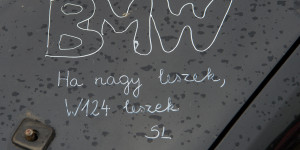 BMW
Ha nagy leszek,
W124 leszek
SL